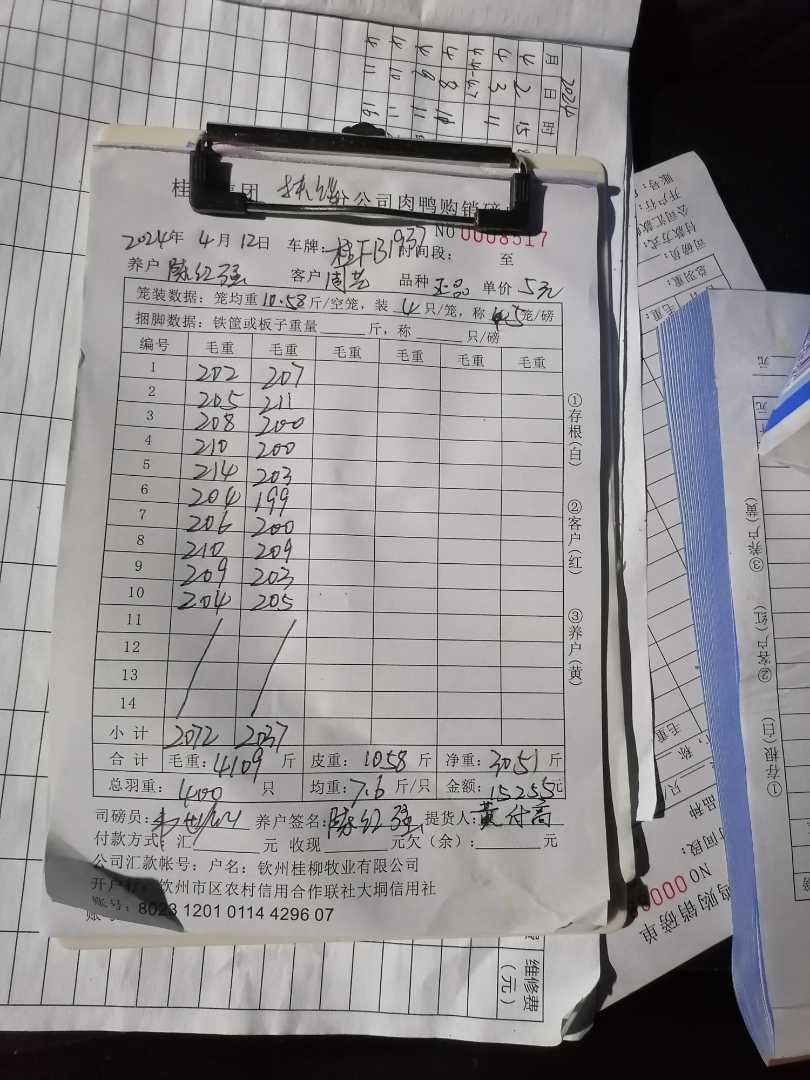 2024
月 日 时
4 2 15
4 3 11
4 8
4 9 11
4 10 11
4 11 16
桂 集团 分公司肉鸭购销磅
NO 0008517
2024年 4月 12日 车牌: 时间段: 至
养户 陈红强 客户 周芸 品种 正品 单价 5元
笼装数据: 笼均重 10.58 斤/空笼, 装 4 只/笼, 称 5 笼/磅
捆脚数据: 铁筐或板子重量 斤, 称 只/磅
编号 毛重 毛重 毛重 毛重 毛重 毛重
1 202 207
2 205 211
3 208 200
4 210 200
5 214 203
6 204 199
7 206 200
8 210 209
9 209 203
10 204 205
11
12
13
14
小计 2072 2037
合计 毛重: 4109 斤 皮重: 1058 斤 净重: 3051 斤
总羽重: 400 只 均重: 7.6 斤/只 金额: 15255元
司磅员: 养户签名: 陈红强 提货人: 黄付高
付款方式: 汇 元 收现 元欠(余): 元
公司汇款帐号: 户名: 钦州桂柳牧业有限公司
开户行: 钦州市区农村信用合作联社大垌信用社
账号: 8023 1201 0114 4296 07
①存根(白) ②客户(红) ③养户(黄)
维修费
(元)
①存根(白) ②客户(红) ③养户(黄)